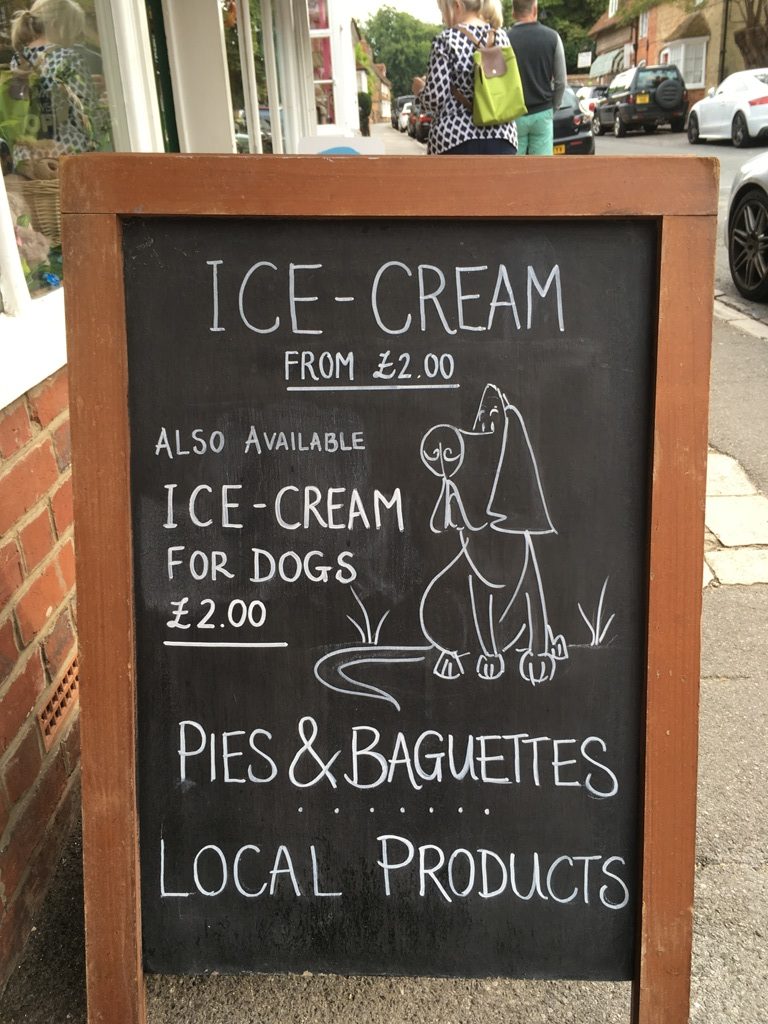 ICE-CREAM
FROM £2.00
ALSO AVAILABLE
ICE-CREAM
FOR DOGS
£2.00
PIES & BAGUETTES
LOCAL PRODUCTS